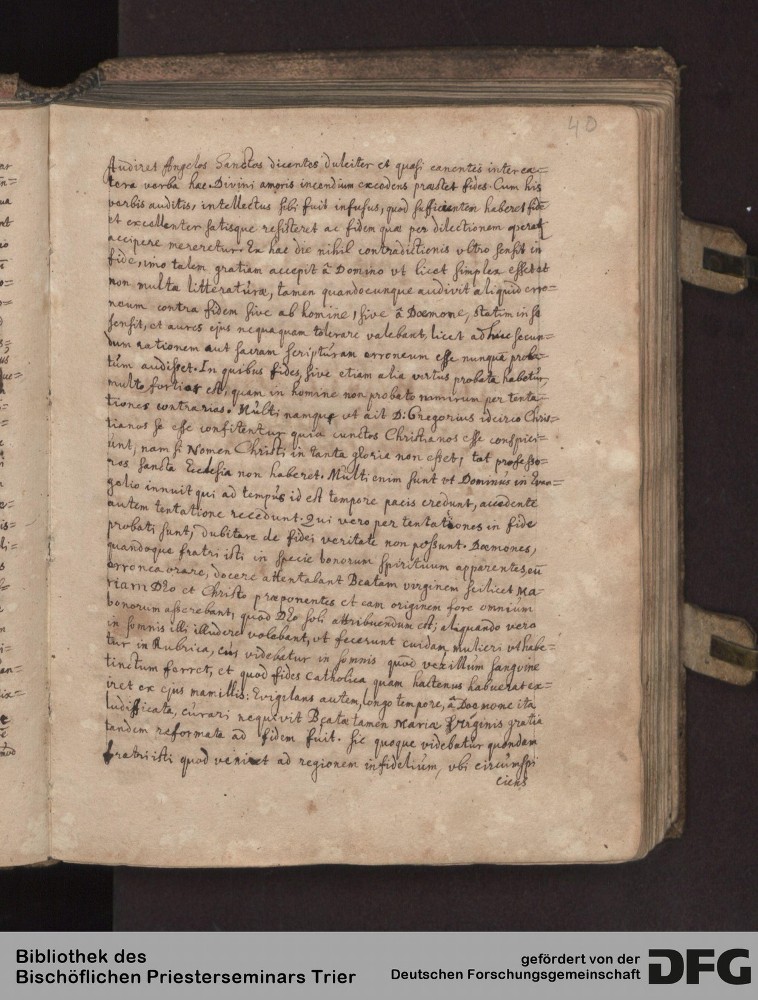 40
Audiret Angelos Sanctos dicentes dulciter et quasi canentes inter cæ=
tera verba hæc Divini amoris incendium excedens præstet fides. Cum his
verbis auditis, intellectus sibi fuit infusus, quod sufficienter haberet fidē
et excellenter satisque resisteret ac fidem quæ per dilectionem operat
accipere mereretur. Ex hac die nihil contradictionis vltro sensit in
fide, imo talem gratiam accepit â Domino vt licet simplex esset et
non multæ litteraturæ, tamen quandocunque audivit aliquid erro=
neum contra fidem sive ab homine, sive â Dœmone, statim in se
sensit, et aures ejus nequaquam tolerare valebant, licet adhuc secun=
dum rationem aut sacram scripturam erroneum esse nunquā proba=
tum audisset. In quibus fides, sive etiam alia virtus probata habetur,
multo fortior est, quam in homine non probato nimirum per tenta=
tiones contrarias. Multi namque vt ait D. Gregorius idcirco Chris=
tianos se esse confitentur quia cunctos Christianos esse conspici=
unt, nam si Nomen Christi in tanta gloria non esset, tot professo=
res sancta Ecclesia non haberet. Multi enim sunt vt Dominus in Evan=
gelio innuit qui ad tempus id est tempore pacis credunt, accedente
autem tentatione recedunt. Qui vero per tentationes in fide
probati sunt, dubitare de fidei veritate non possunt. Dœmones,
quandoque fratri isti in specie bonorum spirituum apparentes, eū
erronea orare, docere attentabant Beatam virginem scilicet Ma=
riam Deo et Christo præponentes et eam originem fore omnium
bonorum asserebant, quod Deo soli attribuendum est; aliquando vero
in somnis illi illudere volebant, vt fecerunt cuidam mulieri vt habe=
tur in Rubrica, cuis videbatur in somnis quod vexillum sanguine
tinctum ferret, et quod fides Catholica quam hactenus habuerat ex=
iret ex ejus mamillis: Evigilans autem, longo tempore, â Dœmone ita
ludificata, curari nequivit Beatæ tamen Mariæ Virginis gratia
tandem reformata ad fidem fuit. Sic quoque videbatur quondam
fratri isti quod veniret ad regionem infidelium, vbi circumspi
ciens
Bibliothek des
Bischöflichen Priesterseminars Trier
gefördert von der
Deutschen Forschungsgemeinschaft
DFG